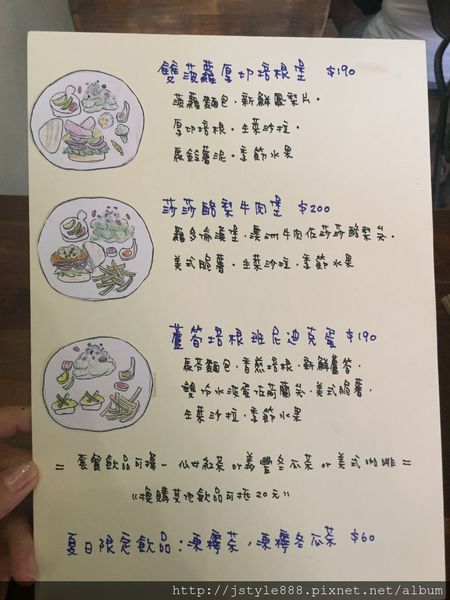 雙菠蘿厚切培根堡 $190
菠蘿麵包·新鮮鳳梨片·
厚切培根·生菜沙拉·
馬鈴薯泥·季節水果
莎莎酪梨牛肉堡 $200
羅多倫漢堡·澳洲牛肉佐莎莎酪梨炎·
美式脆薯·生菜沙拉·季節水果
蘆筍培根班尼迪克蛋 $190
馬芬麵包·香煎培根·新鮮蘆筍·
雙份水波蛋佐荷蘭炎·美式脆薯·
生菜沙拉·季節水果
= 套餐飲品可擇一 仙女紅茶 or 義豐冬瓜茶 or 美式咖啡 =
《換購其他飲品可抵20元》
夏日限定飲品:凍檸茶,凍檸冬瓜茶 $60
http://jstyle888.pixnet.net/album